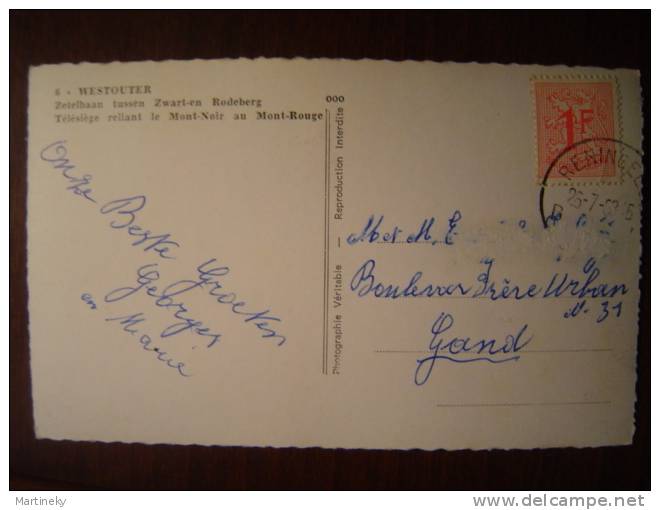 6 - WESTOUTER
Zetelbaan tussen Zwart-en Rodeberg
Télésiège reliant le Mont-Noir au Mont-Rouge
000
Photographie Véritable — Reproduction Interdite
1F
RENINGEL
26-7-
B
Onze Beste Groeten
Georges
en Maria
M et M. E
Boulevar Frère Urban
N- 31
Gand
Martineky
www.delcampe.net